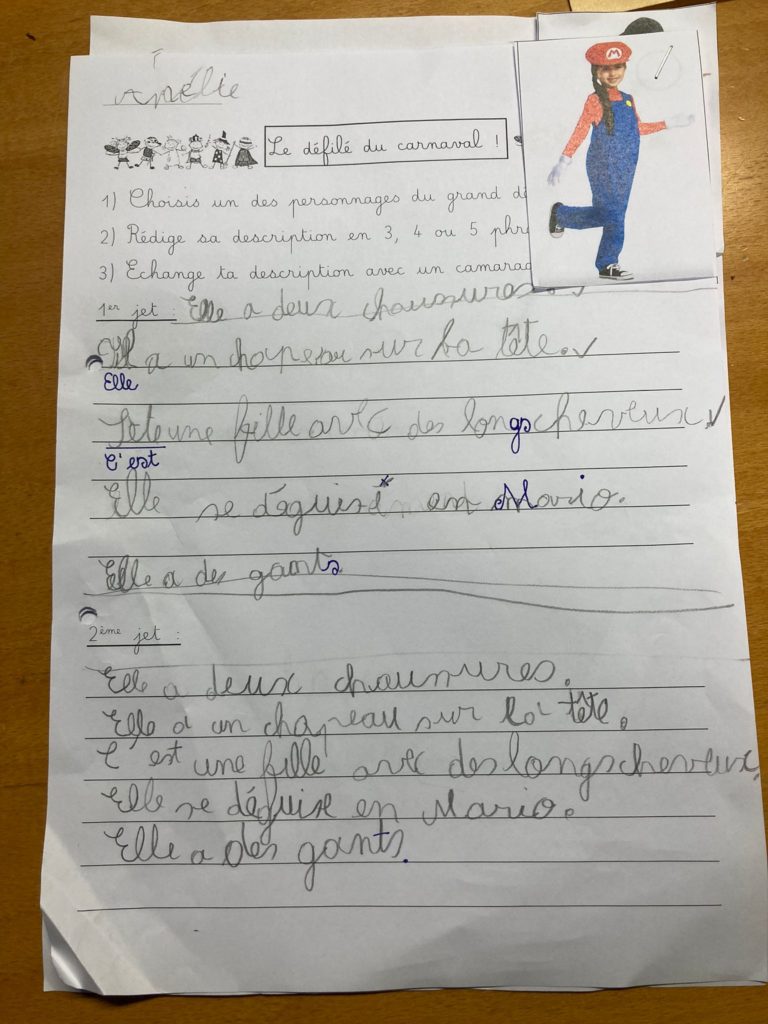 Amélie
Le défilé du carnaval !
1) Choisis un des personnages du grand dé
2) Rédige sa description en 3, 4 ou 5 phr
3) Echange ta description avec un camarad
1er jet : Elle a deux chaussures.
Il a un chapeau sur la tête.
Elle
Sete une fille avec des longs cheveux.
C'est
Elle se déguise en Mario.
Elle a des gants
2ème jet :
Elle a deux chaussures.
Elle a un chapeau sur la tête.
C'est une fille avec des longs cheveux.
Elle se déguise en Mario.
Elle a des gants.
M